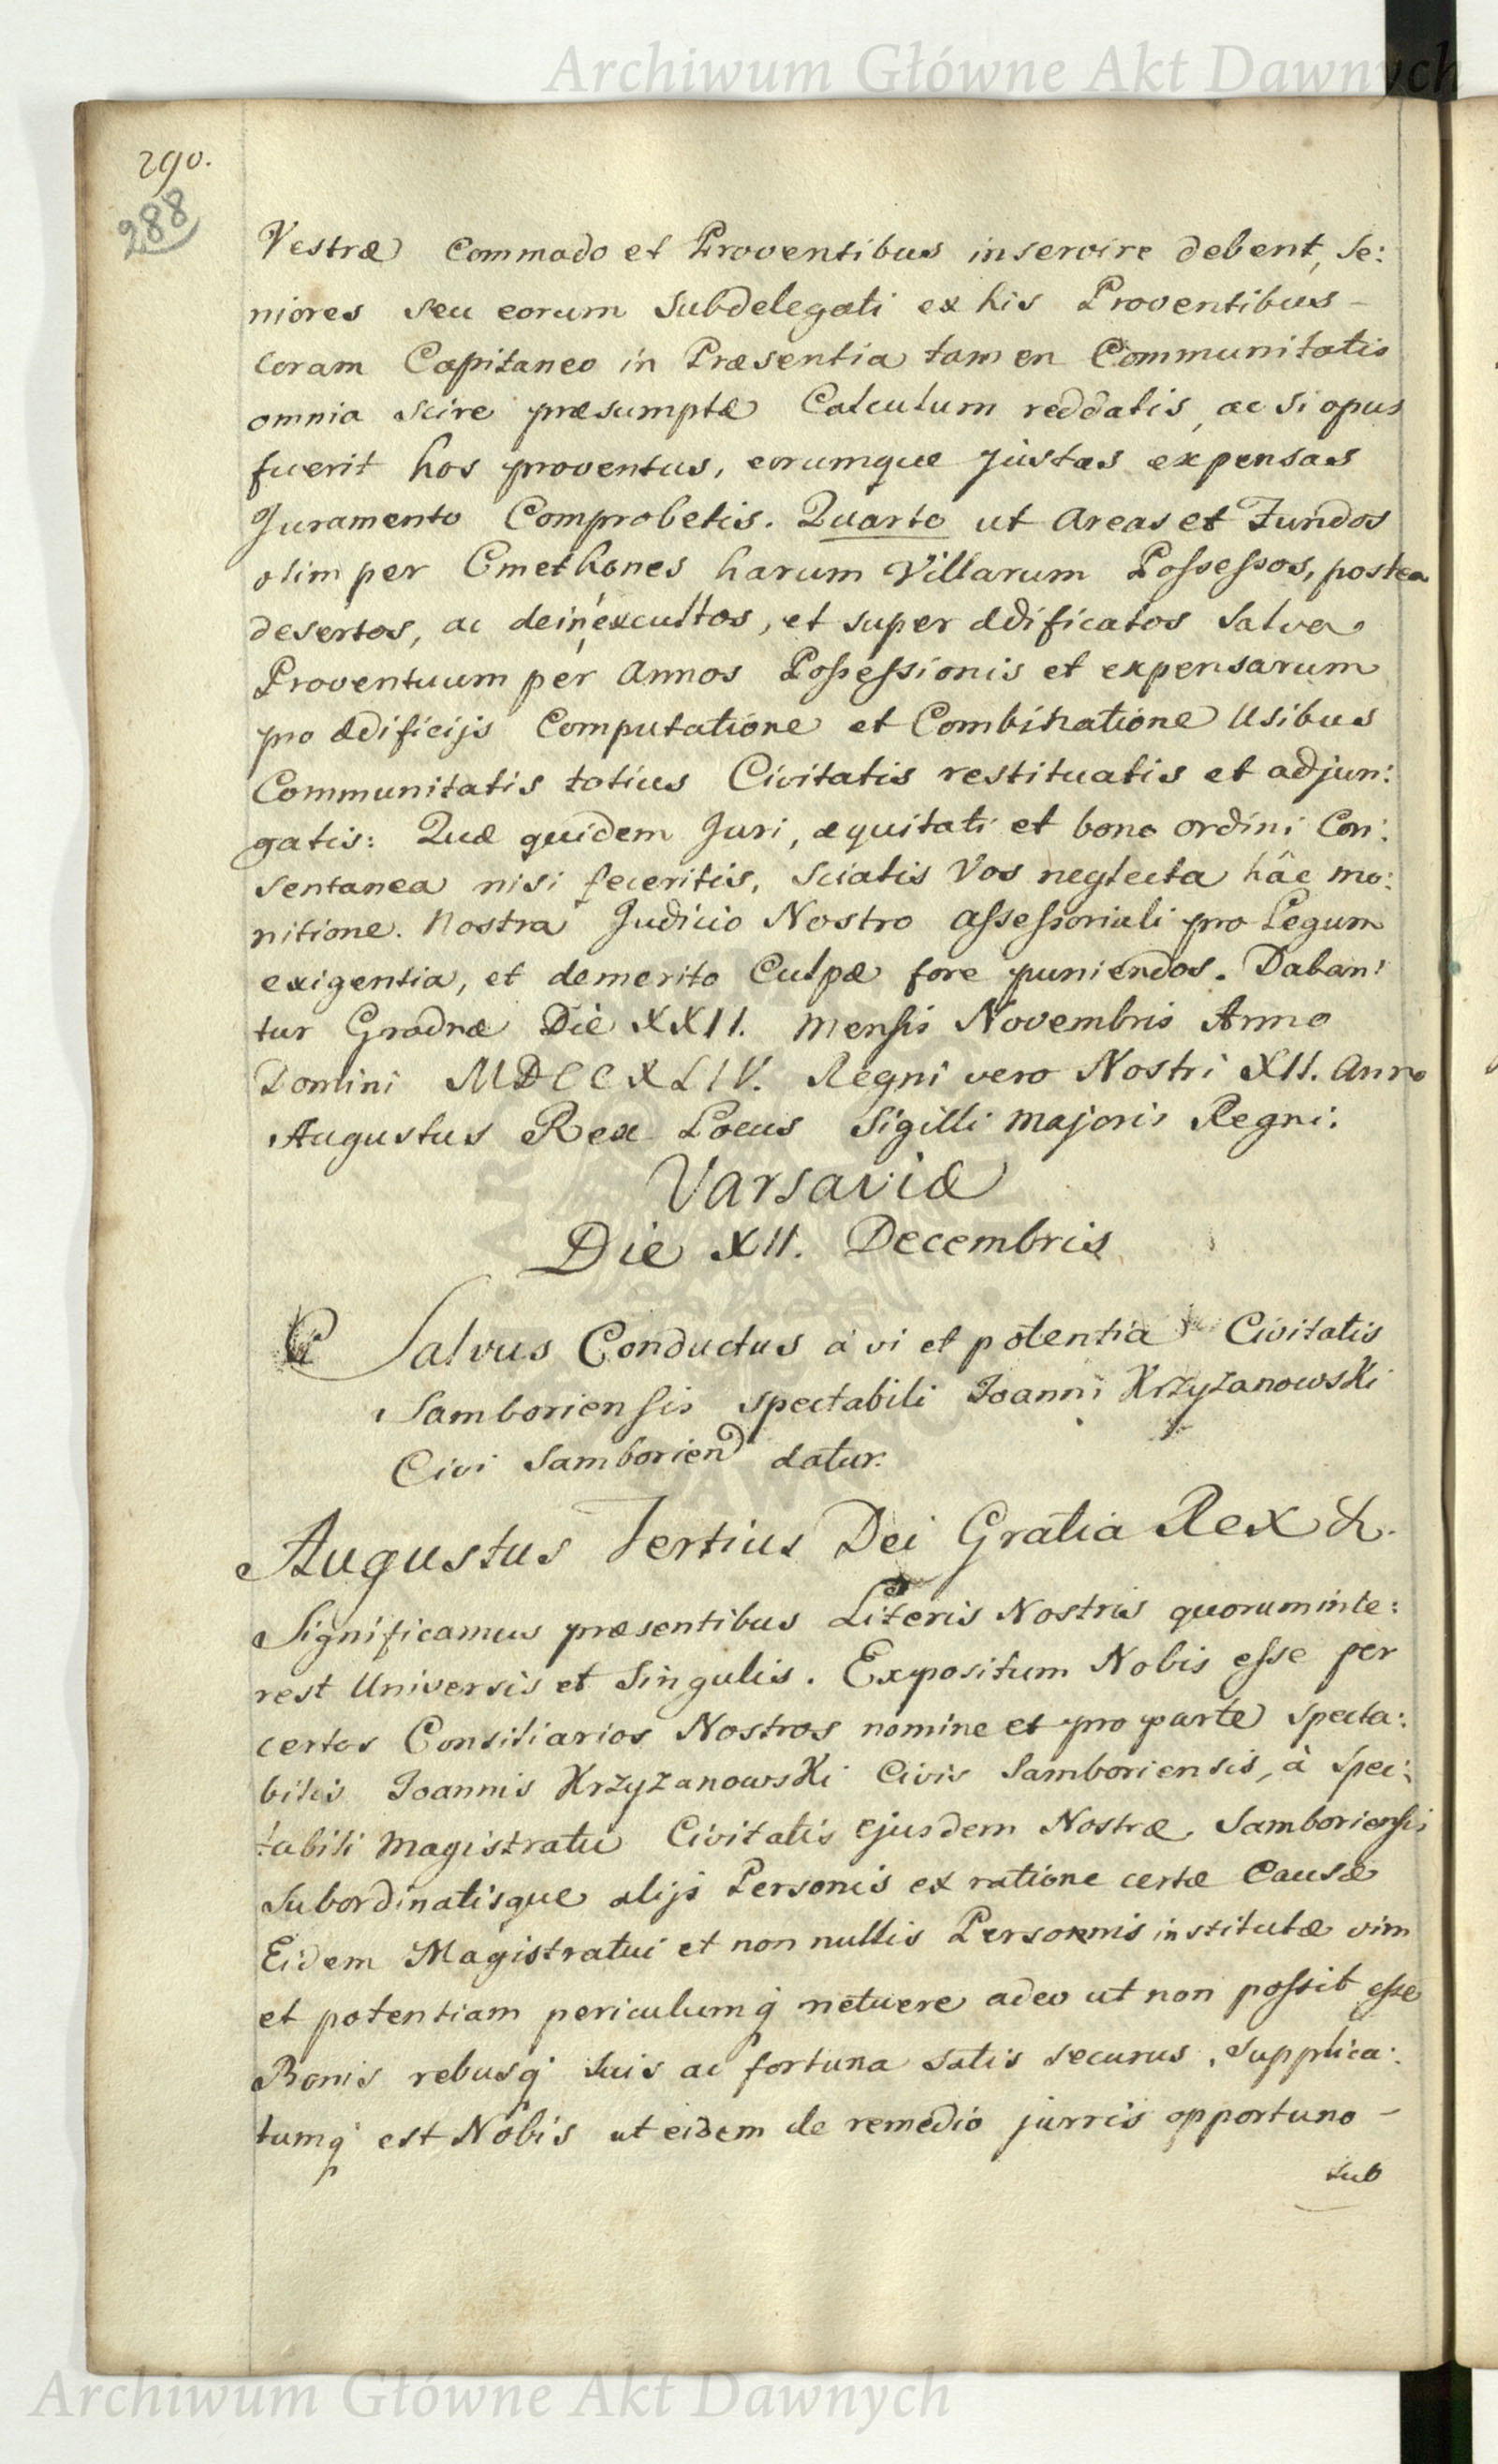 Archiwum Główne Akt Dawnych
290.
288
Vestræ Commado et Proventibus inservire debent, Se:
niores seu eorum Subdelegati ex his Proventibus –
coram Capitaneo in Præsentia tamen Communitatis
omnia scire præsumptæ Calculum reddatis, ac si opus
fuerit hos proventus, eorumque justas expensas
Juramento Comprobetis. Quarto ut Areas et Fundos
olim per Cmethones harum Villarum Possessos, postea
desertos, ac dein excultos, et super ædificatos Salva
Proventuum per Annos Possessionis et expensarum
pro ædificijs Computatione et Combinatione Usibus
Communitatis totius Civitatis restituatis et adjun:
gatis: Quæ quidem Juri, æquitati et bono ordini Con:
sentanea nisi feceritis, Sciatis Vos neglecta hâc mo:
nitione. Nostra Judicio Nostro Assessoriali pro Legum
exigentia, et demerito Culpæ fore puniendos. Daban:
tur Grodnæ Die XXII. Mensis Novembris Anno
Domini MDCCXLIV. Regni vero Nostri XII. Anno
Augustus Rex Locus Sigilli Majoris Regni.
Varsaviæ
Die XII. Decembris
Salvus Conductus à vi et potentia Civitatis
Samboriensis spectabili Joanni Krzyżanowski
Civi Samborien datur.
Augustus Tertius Dei Gratia Rex &.
Significamus præsentibus Literis Nostris quorum inte:
rest Universis et Singulis. Expositum Nobis esse per
certos Consiliarios Nostros nomine et pro parte specta:
bilis Joannis Krzyżanowski Civis Samboriensis, à Spec:
tabili Magistratu Civitatis ejusdem Nostræ Samboriensis
Subordinatisque alijs Personis ex ratione certæ Causæ
Eidem Magistratui et non nullis Personnis institutæ vim
et potentiam periculumq́ metuere adeo ut non possit esse
Bonis rebusq́ suis ac fortuna satis securus, Supplica:
tumq́ est Nobis ut eidem de remedio jurris opportuno –
sub
Archiwum Główne Akt Dawnych